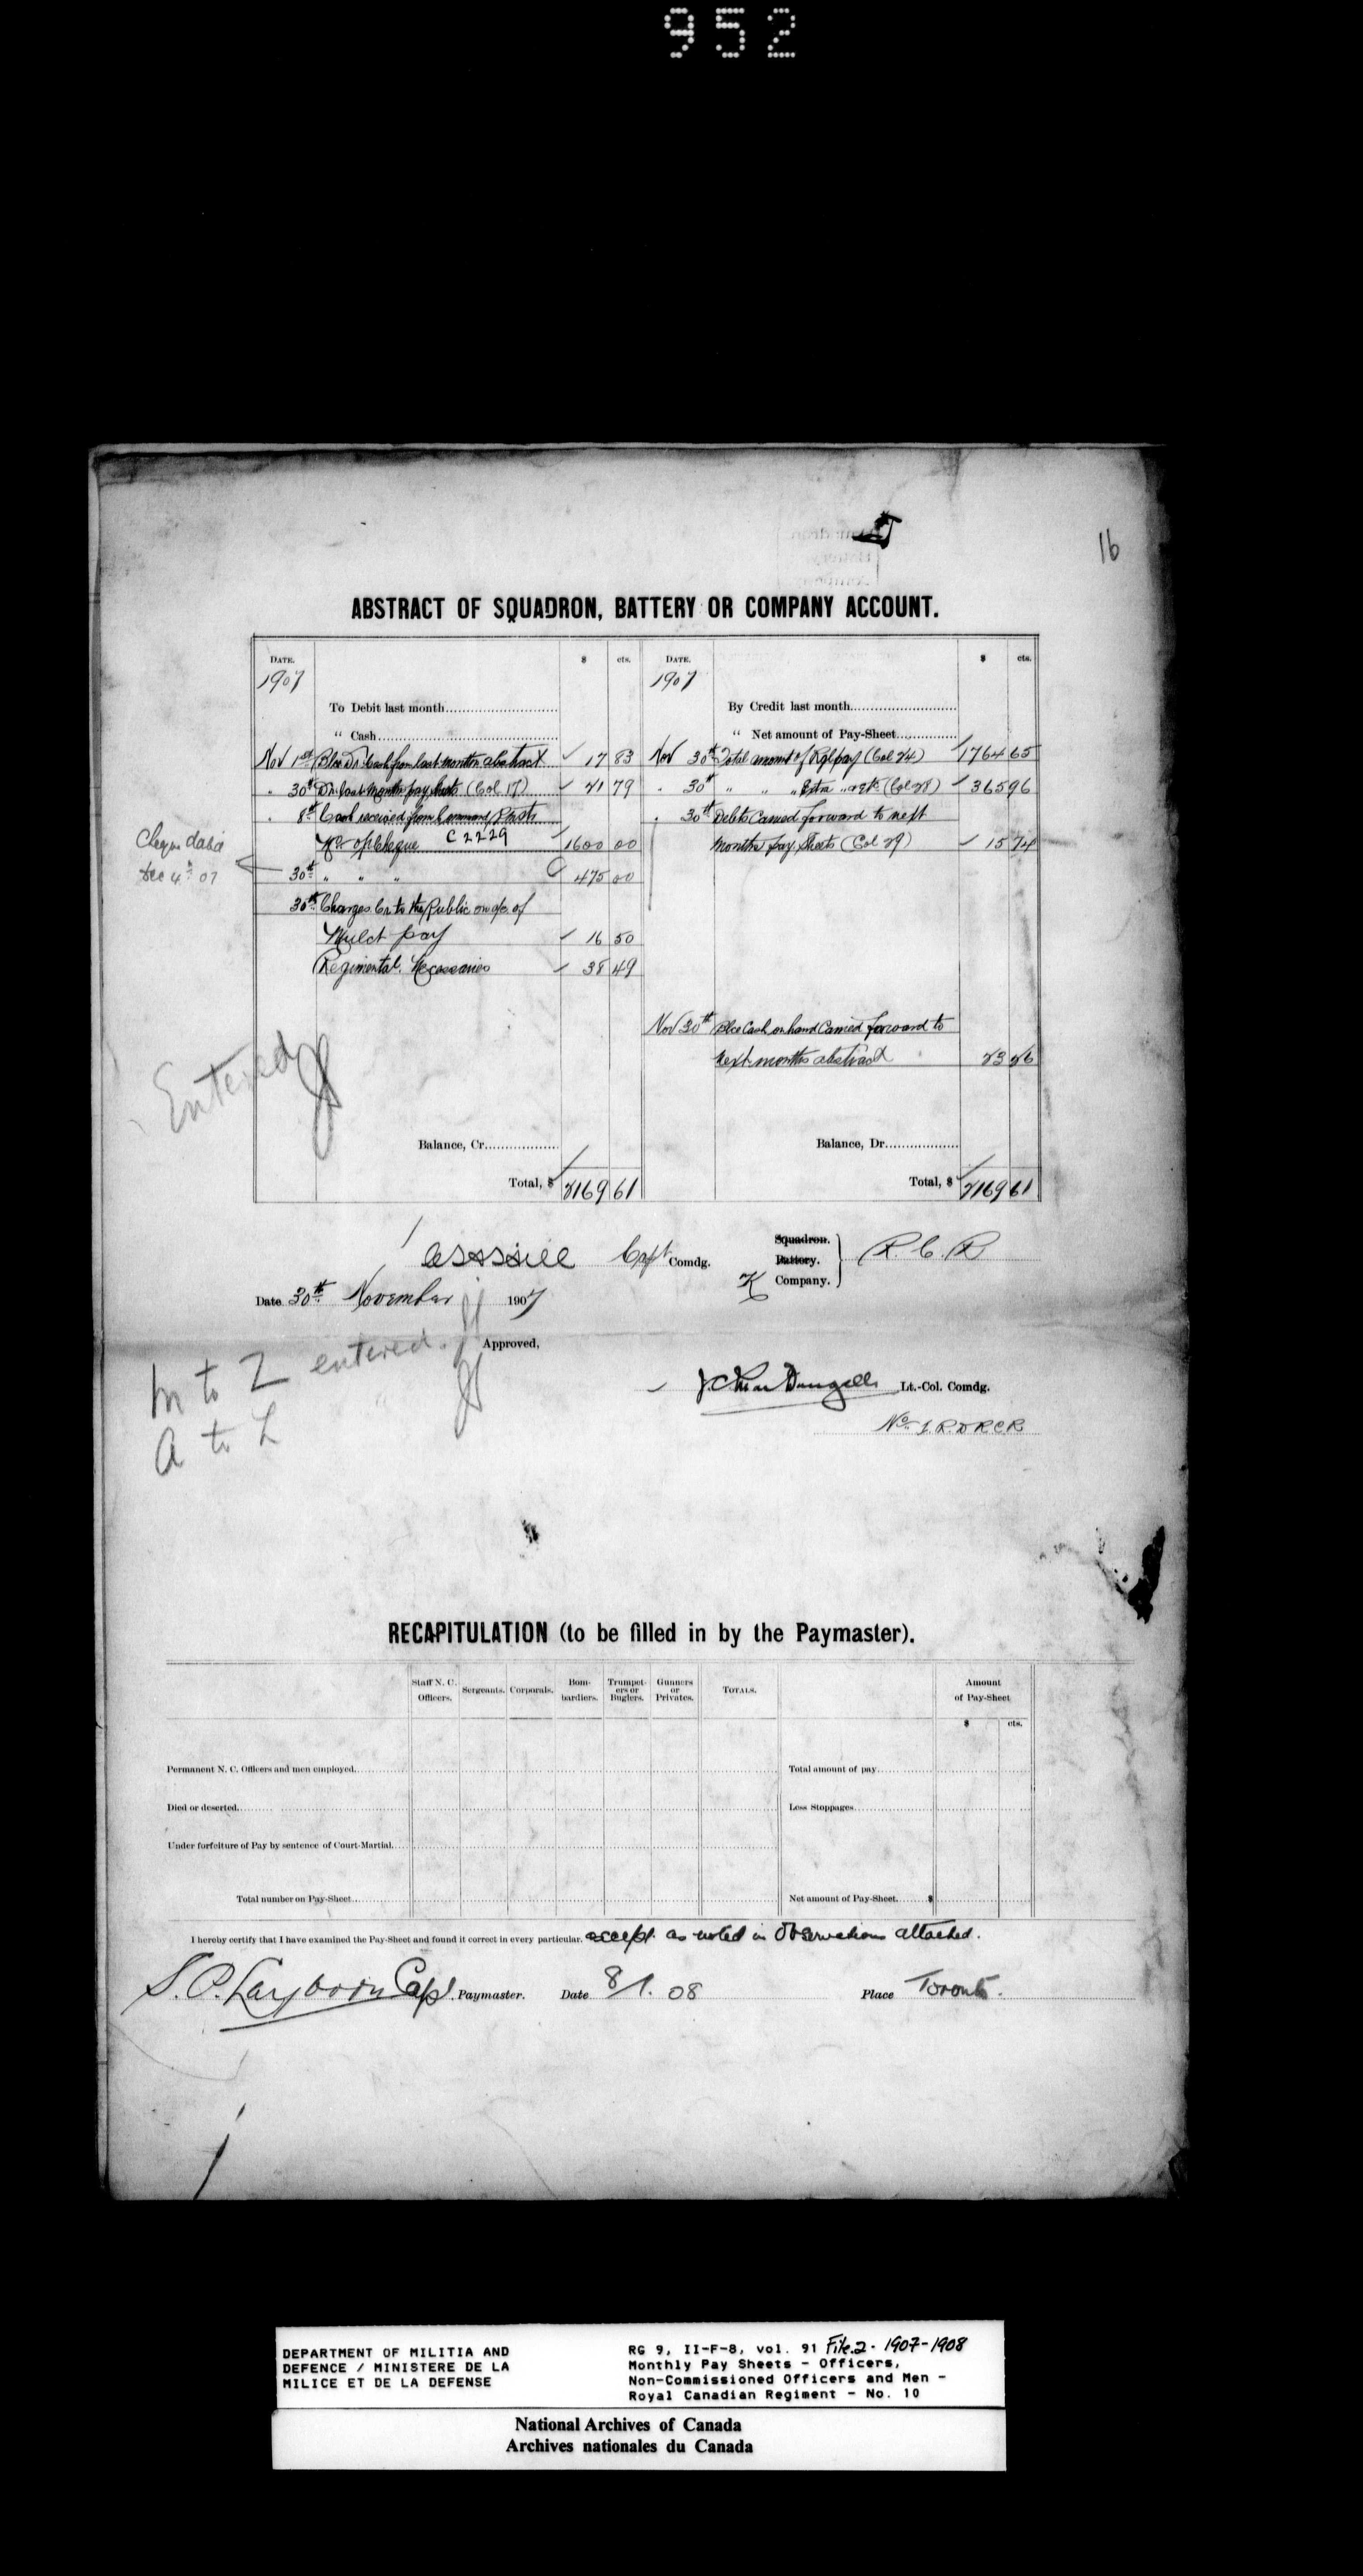 952
16
ABSTRACT OF SQUADRON, BATTERY OR COMPANY ACCOUNT.
DATE. $ cts. DATE. $ cts.
1907 1907
To Debit last month By Credit last month
“ Cash “ Net amount of Pay-Sheet
Nov 1st Blce Dr. Cash from last months abstract 17 83 Nov 30th Total amount of Rgl pay (Col 24) 1764 65
" 30th Dr. last months pay lists (Col 17) 21 79 " 30th " " " Extra " (Col 28) 365 96
" 8th Cash received from Command P 30th Debts Carried forward to next
No. of Cheque C2229 1600 00 months pay Sheets (Col 29) 15 74
Cheque dated
Dec 4th 07
30th " " " 475 00
30th Charges Cr to the Public on a/c of
Mulct pay 16 50
Regimental Necessaries 38 49
Nov 30th Blce Cash on hand Carried forward to
next months abstract 23 26
Entered
Balance, Cr. Balance, Dr.
Total, $ 2169 61 Total, $ 2169 61
Capt Comdg. Squadron. Battery. K Company. } R. C. R
Date 30th November 1907
Approved,
M to Z entered.
A to L
J C MacDougall Lt.-Col. Comdg.
No. 1.R.D R.C.R
RECAPITULATION (to be filled in by the Paymaster).
Staff N. C. Officers. Sergeants. Corporals. Bombardiers. Trumpeters or Buglers. Gunners or Privates. TOTALS. Amount of Pay-Sheet
$ cts.
Permanent N. C. Officers and men employed. Total amount of pay
Died or deserted. Less Stoppages
Under forfeiture of Pay by sentence of Court-Martial.
Total number on Pay-Sheet Net amount of Pay-Sheet. $
I hereby certify that I have examined the Pay-Sheet and found it correct in every particular. except as noted in Observations attached.
S. P. Layborn Capt. Paymaster. Date 8/1. 08 Place Toronto.
DEPARTMENT OF MILITIA AND
DEFENCE / MINISTERE DE LA
MILICE ET DE LA DEFENSE
RG 9, II-F-8, vol. 91 File.2. 1907-1908
Monthly Pay Sheets - Officers,
Non-Commissioned Officers and Men -
Royal Canadian Regiment - No. 10
National Archives of Canada
Archives nationales du Canada